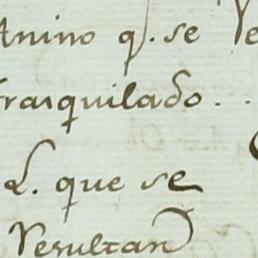 Anino q. se Ve
trasquilado..
L. que se
Resultan